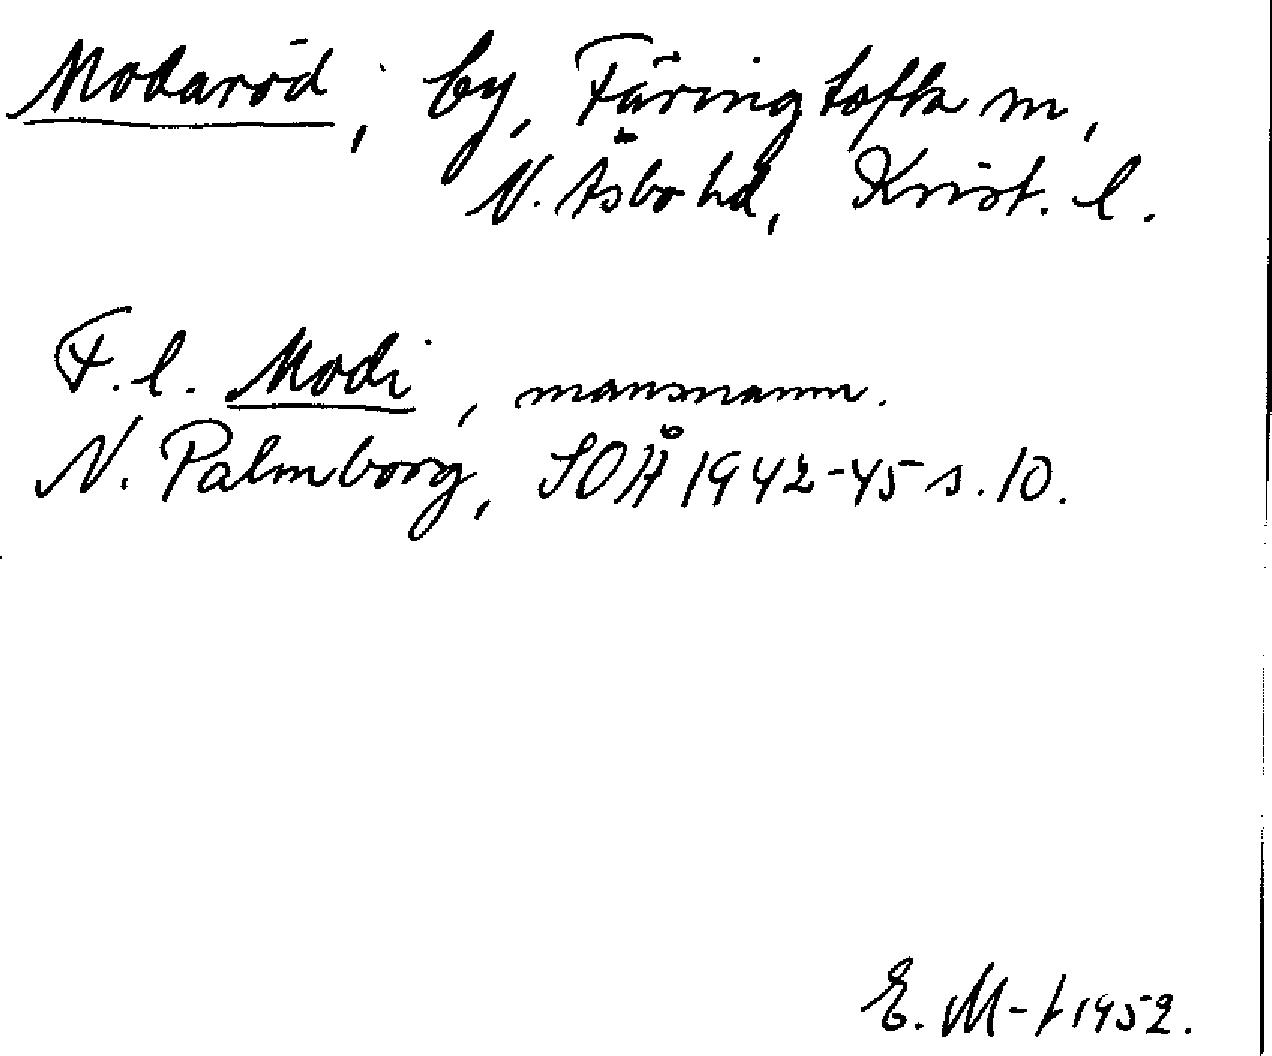 Modaröd, by, Färingtofta sn,
N. Åsbo hd, Krist. l.
F. l. Modi, mansnamn.
N. Palmborg, SOÅ 1942-45 s. 10.
E. M-t 1952.